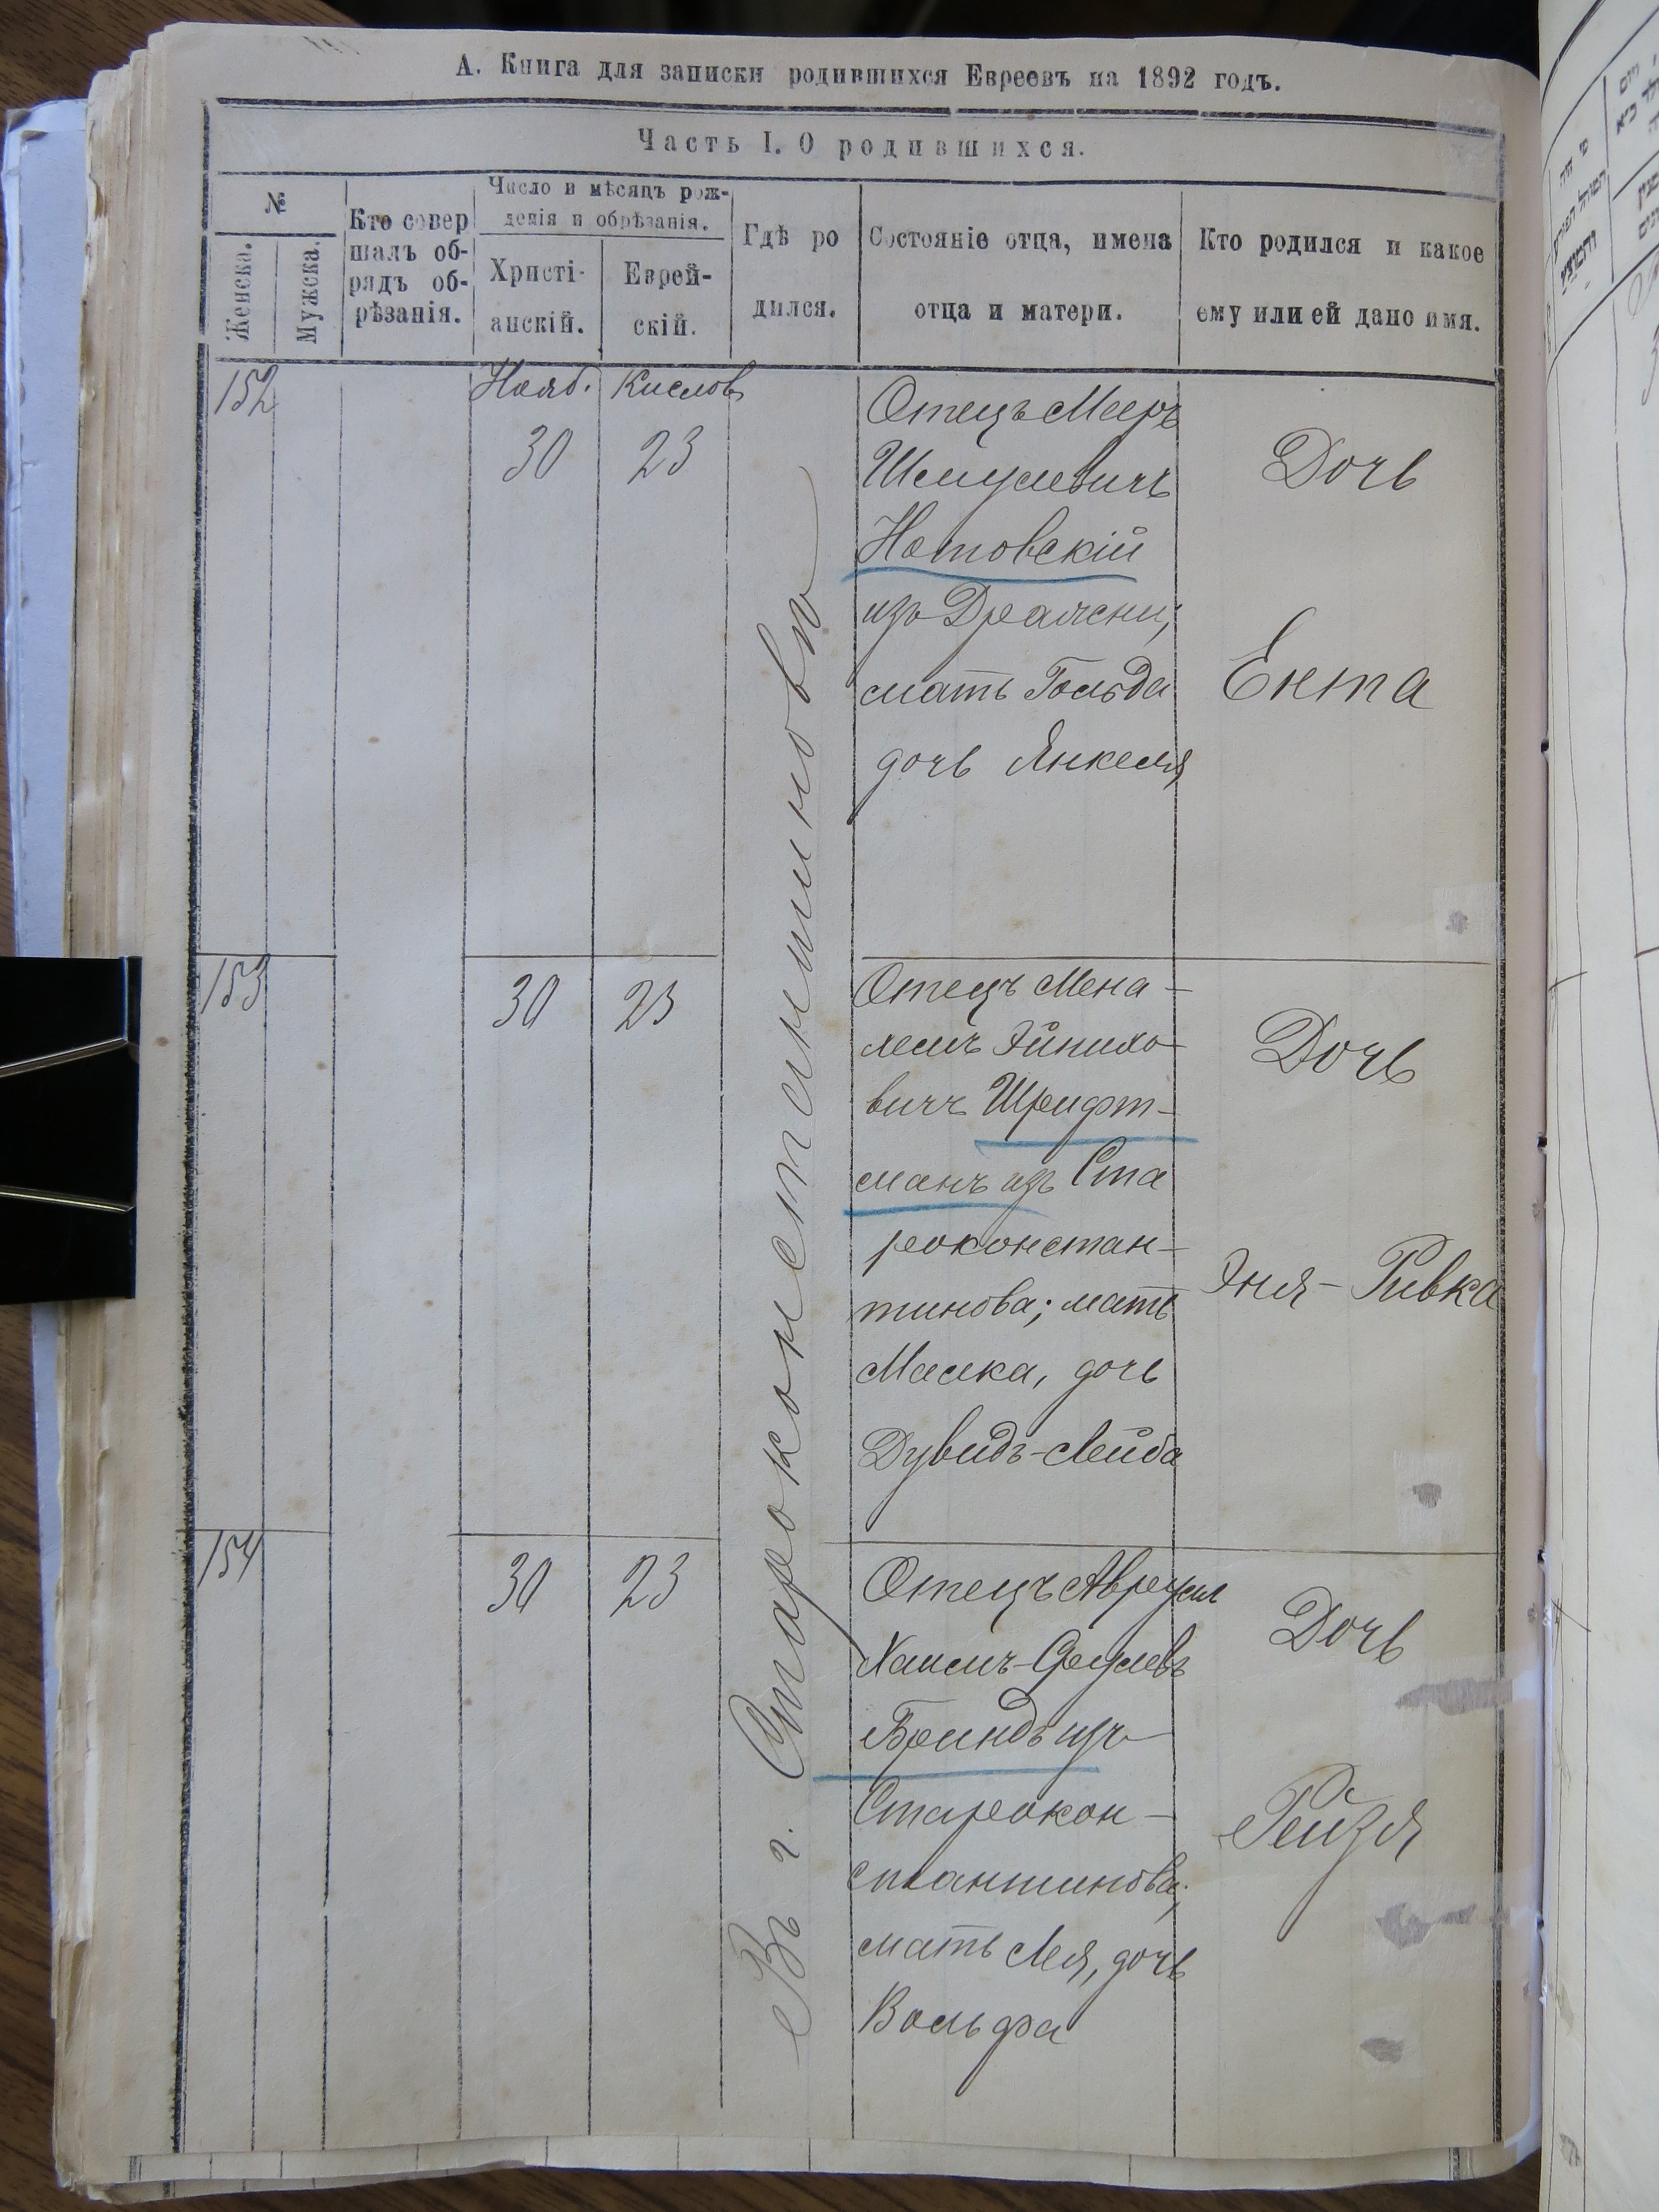 А. Книга для записки родившихся Евреевъ на 1892 годъ.
Часть I. О родившихся.
№
Женска.
Мужска.
Кто совер
шалъ об-
рядъ об-
рѣзанія.
Число и мѣсяцъ рож-
денія и обрѣзанія.
Христі-
анскій.
Еврей-
скій.
Гдѣ ро
дился.
Состояніе отца, имена
отца и матери.
Кто родился и какое
ему или ей дано имя.
Въ г. Староконстантиновѣ
152
Нояб.
30
Кислов
23
Отецъ Мееръ
Шмулевичъ
Нотовскій
изъ
мать Гольда
дочь Янкеля
Дочь
Ента
153
30
23
Отецъ Мена-
хемъ Эйнихо-
вичъ Шрифт-
манъ изъ Ста
роконстан-
тинова; мать
Малка, дочь
Дувидъ-Лейба
Дочь
Эня-Ривка
154
30
23
Отецъ Аврумъ
Хаимъ-Сруlевъ
Бриндъ изъ
Старокон-
стантинова;
мать Лея, дочь
Вольфа
Дочь
Рейзя